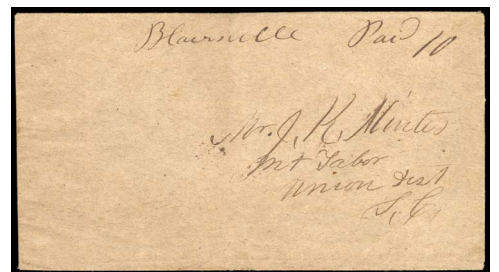 Blairsville Paid 10
Mr. J. H. Minter
Mt Tabor
Union Dist
S. C.